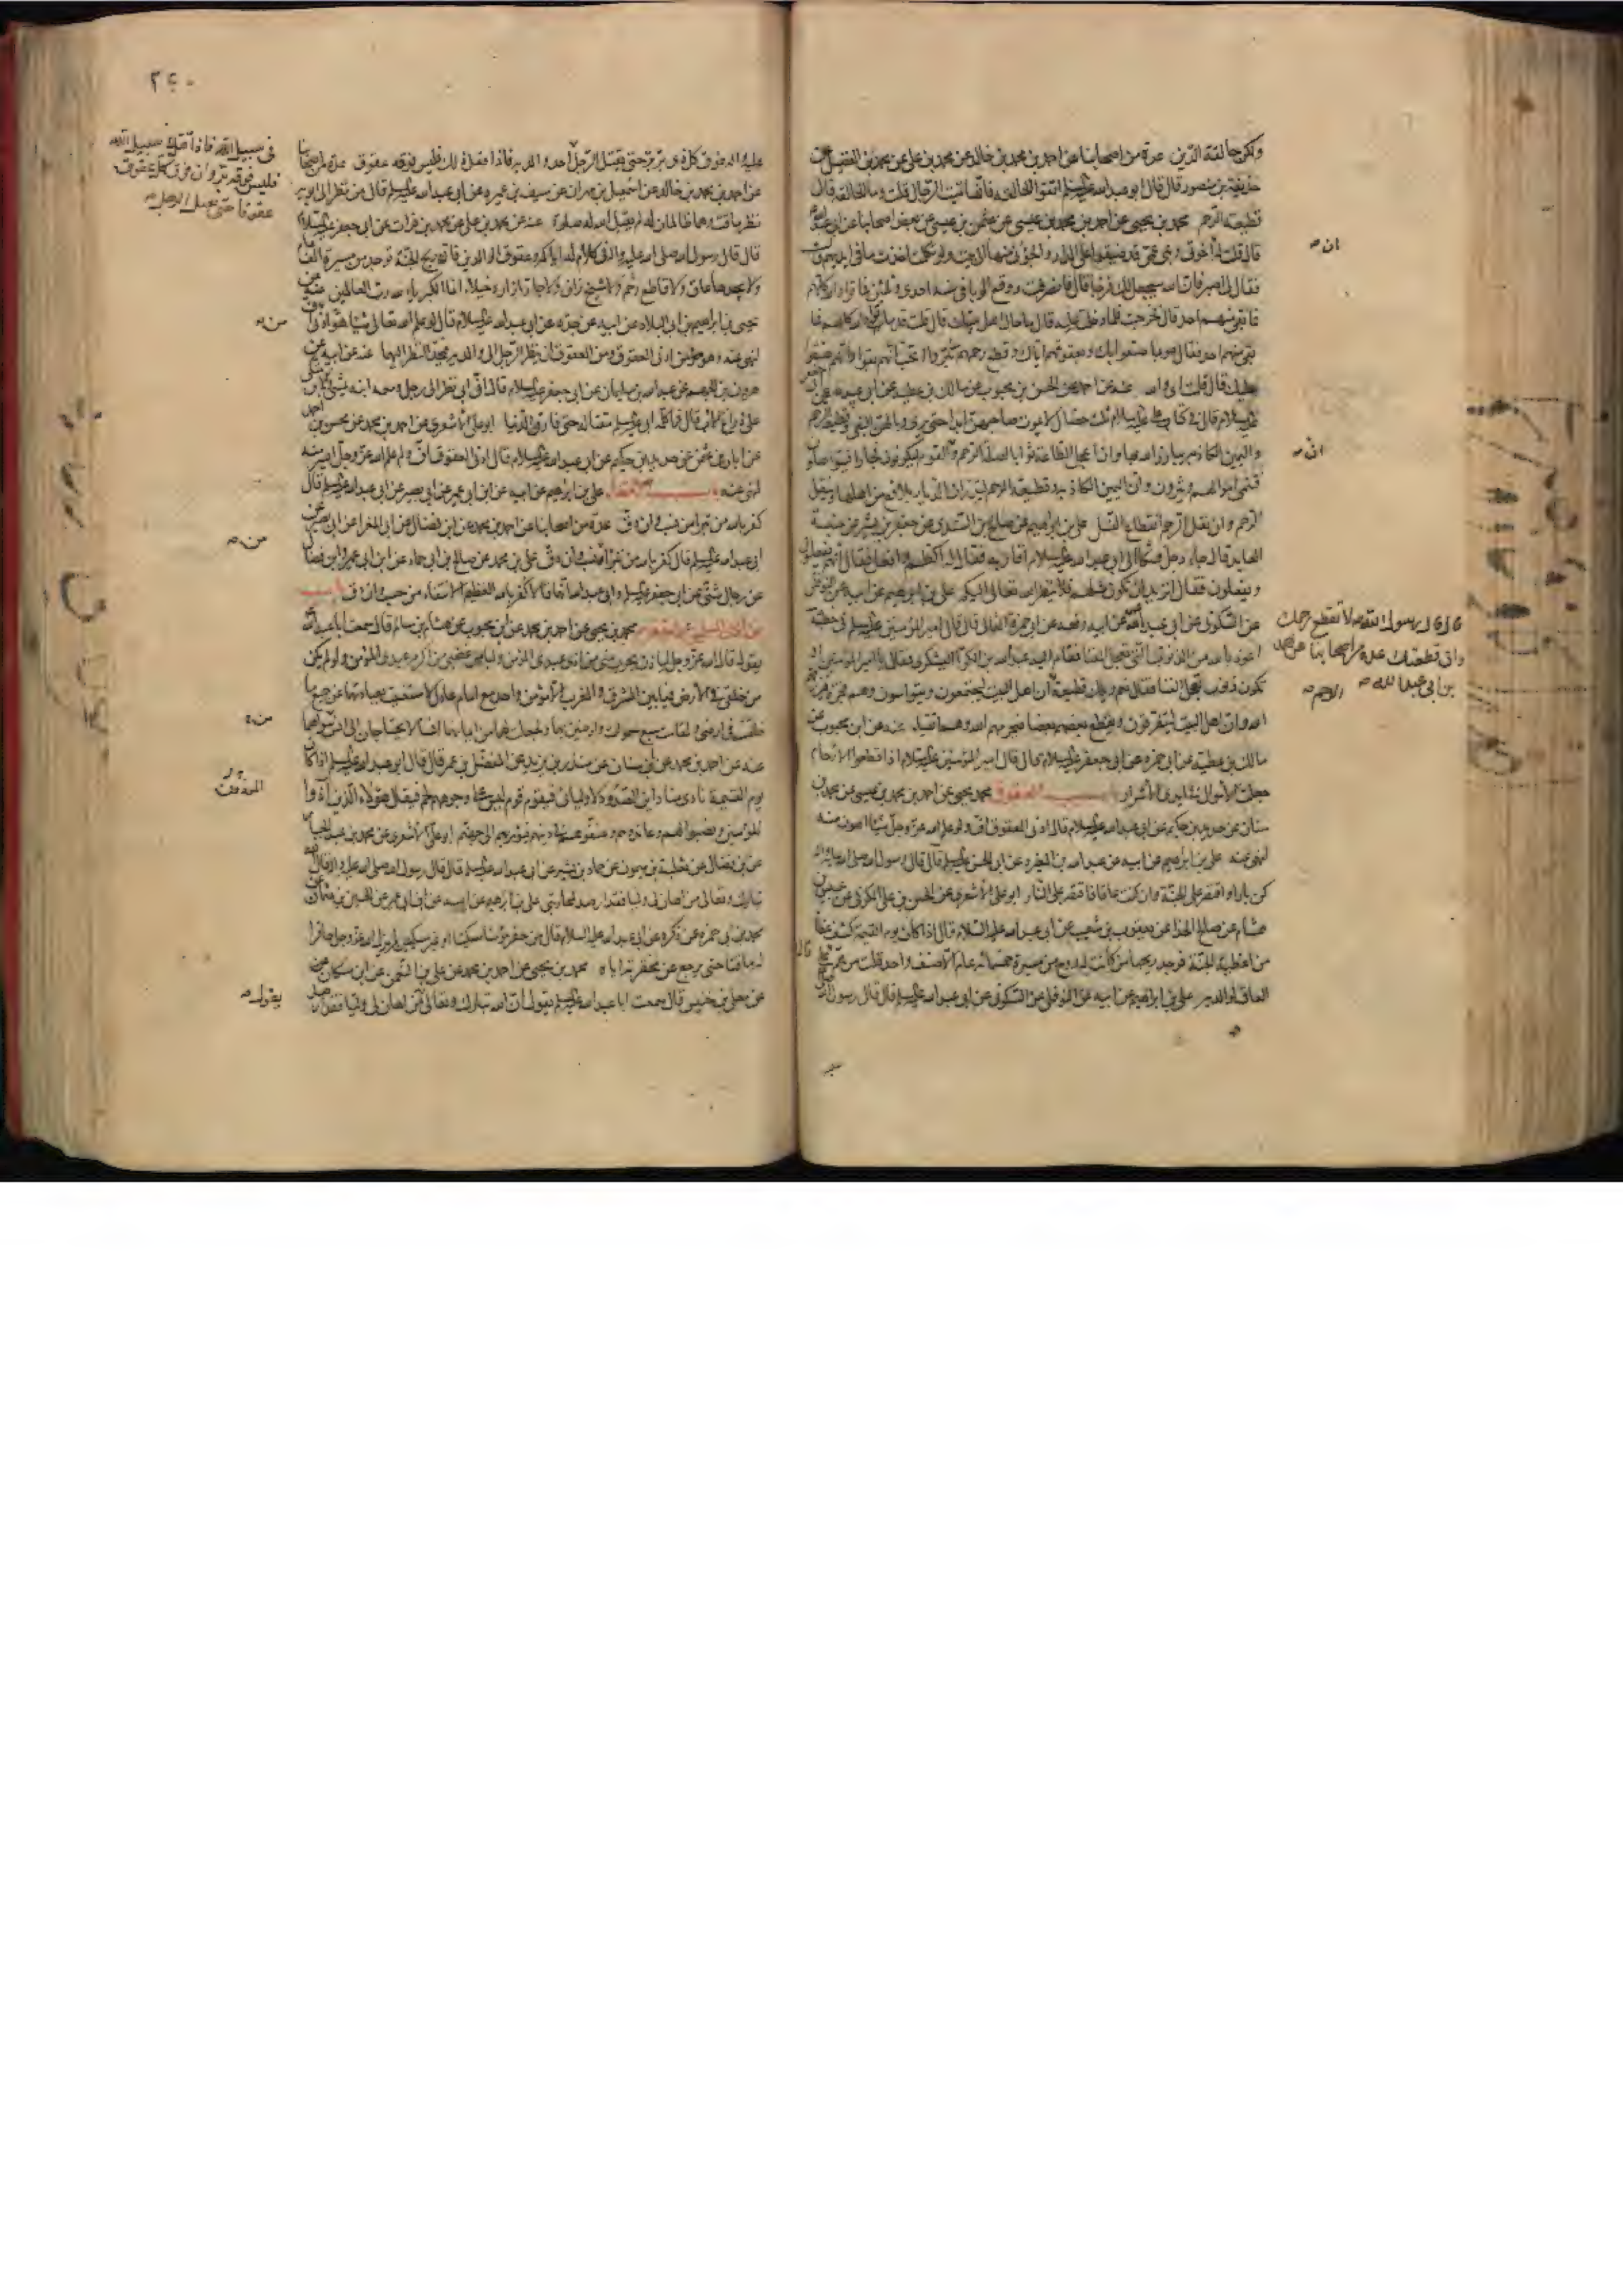 ولكن حالقة الدين عدة من اصحابنا عن احمد بن محمد بن خالد عن محمد بن علي عن محمد بن الفضيل عن
حذيفة بن منصور قال قال ابو عبد الله عليه السلم اتقوا الحالقة فانها تميت الرجال قلت وما الحالقة قال
قطيعة الرحم محمد بن يحيى عن احمد بن محمد بن عيسى عن عثمن بن عيسى عن بعض اصحابنا عن ابي عبد الله
قال قلت له اخوتى وبنى عمى قد ضيقوا على الدار والجؤنى منها الى بيت ولو تكلمت اخذت ما فى ايديهم
فقال لى اصبر فان الله سيجعل لك فرجا قال فانصرفت ووقع الوبا فى سنة احدى وثلثين فماتوا والله كلهم
فما بقى منهم احد قال فخرجت فلما دخلت عليه قال ما حال اهل بيتك قال قلت قد ماتوا والله كلهم فما
بقى منهم احد فقال هو بما صنعوا بك وبعقوقهم اياك وقطع رحمهم بتروا اتحب انهم بقوا وانهم ضيقوا
عليك قال قلت اى والله عنه عن احمد عن الحسن بن محبوب عن مالك بن عطية عن ابى عبيدة عن ابى جعفر
عليه السلام قال فى كتاب على عليه السلام ثلث خصال لا يموت صاحبهن ابدا حتى يرى وبالهن البغى وقطيعة الرحم
واليمين الكاذبة يبارز الله بها وان اعجل الطاعة ثوابا لصلة الرحم وان القوم ليكونون فجارا فيتواصلون
فتنمى اموالهم ويثرون وان اليمين الكاذبة وقطيعة الرحم لتذران الديار بلاقع من اهلها وينقل
الرحم وان نقل الرحم انقطاع النسل على بن ابراهيم عن صالح بن السندى عن جعفر بن بشير عن عنبسة
العابد قال جاء رجل فشكا الى ابى عبد الله عليه السلام اقاربه فقال له اكظم وافعل فقال انهم يفعلون
ويفعلون فقال اتريد ان تكون مثلهم فلا ينظر الله تعالى اليكم على بن ابراهيم عن ابيه عن النوفلى
عن السكونى عن ابى عبد الله عن ابيه رفعه عن ابى حمزة الثمالى قال قال امير المؤمنين عليه السلم فى خطبته
اعوذ بالله من الذنوب التى تعجل الفنا فقام اليه عبد الله بن الكوا اليشكرى فقال يا امير المؤمنين او
تكون ذنوب تعجل الفنا فقال نعم ويلك قطيعة ان اهل البيت ليجتمعون ويتواسون وهم فجرة فيرزقهم
الله وان اهل البيت ليتفرقون ويقطع بعضهم بعضا فيحرمهم الله وهم اتقيا عنه عن ابن محبوب عن
مالك بن عطية عن ابى حمزة عن ابى جعفر عليه السلام قال قال امير المؤمنين عليه السلام اذا قطعوا الارحام
جعلت الاموال فى ايدى الاشرار باب العقوق محمد بن يحيى عن احمد بن محمد بن عيسى عن محمد بن
سنان عن حديد بن حكيم عن ابى عبد الله عليه السلام قال ادنى العقوق اف ولو علم الله عز وجل شيئا اهون منه
لنهى عنه على بن ابراهيم عن ابيه عن عبد الله بن المغيرة عن ابى الحسن عليه السلم قال قال رسول الله صلى الله عليه واله
كن بارا واقصر على الجنة وان كنت عاقا فاقصر على النار ابو على الاشعرى عن الحسن بن على الكوفى عن عبيس بن
هشام عن صالح الحذا عن يعقوب بن شعيب عن ابى عبد الله عليه السلام قال اذا كان يوم القيمة كشف غطا
من اغطية الجنة فوجد ريحها من كانت له روح من مسيرة خمسمائة عام الا صنف واحد قلت من هم قال
العاق لوالديه على بن ابراهيم عن ابيه عن النوفلى عن السكونى عن ابى عبد الله عليه السلم قال قال رسول الله
ان صح
ان صح
قال قال رسول الله ص لا تقطع رحمك
وان قطعتك عدة من اصحابنا عن احمد
بن ابى عبد الله صح
الرحم صح
٢٤٠
عليه واله فوق كل ذى بر بر حتى يقتل الرجل احد والديه فاذا فعل ذلك فليس فوقه عقوق عدة من اصحابنا
عن احمد بن محمد بن خالد عن اسمعيل بن مهران عن سيف بن عميرة عن ابى عبد الله عليه السلم قال من نظر الى ابويه
نظر ماقت وهما ظالمان له لم يقبل الله له صلوة عنه عن محمد بن على عن محمد بن فرات عن ابى جعفر عليه السلام
قال قال رسول الله صلى الله عليه واله فى كلام له اياكم وعقوق الوالدين فان ريح الجنة توجد من مسيرة الف
ولا يجدها عاق ولا قاطع رحم ولا شيخ زان ولا جار ازاره خيلاء انما الكبرياء لله رب العالمين عنه عن
يحيى بن ابراهيم بن ابى البلاد عن ابيه عن جده عن ابى عبد الله عليه السلام قال لو علم الله تعالى شيئا هو ادنى
لنهى عنه وهو من ادنى العقوق ومن العقوق ان ينظر الرجل الى والديه فيحد النظر اليهما عنه عن ابيه عن
هرون بن الجهم عن عبد الله بن سليمان عن ابى جعفر عليه السلام قال ان ابى نظر الى رجل ومعه ابنه يمشى والابن متكى
على ذراع الاب قال فما كلمه ابى عليه السلم مقتا له حتى فارق الدنيا ابو على الاشعرى عن احمد بن محمد عن محسن بن احمد
عن ابان بن عثمن عن حديد بن حكيم عن ابى عبد الله عليه السلام قال ادنى العقوق اف ولو علم الله عز وجل ايسر منه
لنهى عنه باب الانتفاء على بن ابراهيم عن ابيه عن ابن ابى عمير عن ابى بصير عن ابى عبد الله عليه السلم قال
كفر بالله من تبرا من نسب وان دق عدة من اصحابنا عن احمد بن محمد عن ابن فضال عن ابى المغرا عن ابى بصير عن
ابى عبد الله عليه السلم قال كفر بالله من تبرا من نسب وان دق على بن محمد عن صالح بن ابى حماد عن ابن ابى عمير وابن فضال
عن رجال شتى عن ابى جعفر عليه السلم وابى عبد الله انهما قالا كفر بالله العظيم الانتفاء من حسب وان دق باب
من اذى المسلمين واحتقرهم محمد بن يحيى عن احمد بن محمد عن ابن محبوب عن هشام بن سالم قال سمعت ابا عبد الله
يقول قال الله عز وجل لياذن بحرب منى من اذى عبدى المؤمن وليامن غضبى من اكرم عبدى المؤمن ولو لم يكن
من خلقى فى الارض فيما بين المشرق والمغرب الا مؤمن واحد مع امام عادل لاستغنيت بعبادتهما عن جميع ما
خلقت فى ارضى ولقامت سبع سموات وارضين بهما ولجعلت لهما من ايمانهما انسا لا يحتاجان الى انس سواهما
عنه عن احمد بن محمد عن ابن سنان عن منذر بن يزيد عن المفضل بن عمر قال قال ابو عبد الله عليه السلم اذا كان
يوم القيمة نادى مناد اين الصدود لاوليائى فيقوم قوم ليس على وجوههم لحم فيقال هؤلاء الذين آذوا
المؤمنين ونصبوا لهم وعاندوهم وعنفوهم فى دينهم ثم يؤمر بهم الى جهنم ابو على الاشعرى عن محمد بن عبد الجبار
عن بن فضال عن ثعلبة بن ميمون عن حماد بن بشير عن ابى عبد الله عليه السلم قال قال رسول الله صلى الله عليه واله قال الله
تبارك وتعالى من اهان لى وليا فقد ارصد لمحاربتى على بن ابراهيم عن ابيه عن ابن ابى عمير عن الحسين بن عثمان عن
محمد بن ابى حمزة عن ذكره عن ابى عبد الله عليه السلام قال من حقر مؤمنا مسكينا او غير مسكين لم يزل الله عز وجل حاقرا
له ماقتا حتى يرجع عن محقرته اياه محمد بن يحيى عن احمد بن محمد عن على بن النعمن عن ابن مسكان عن
عن معلى بن خنيس قال سمعت ابا عبد الله عليه السلم يقول ان الله تبارك وتعالى من اهان لى وليا فقد ارصد
فى سبيل الله فاذا قتل فى سبيل الله
فليس فوقه بر وان فوق كل عقوق
عقوقا حتى يقتل الرجل صح
من صح
يقول صح